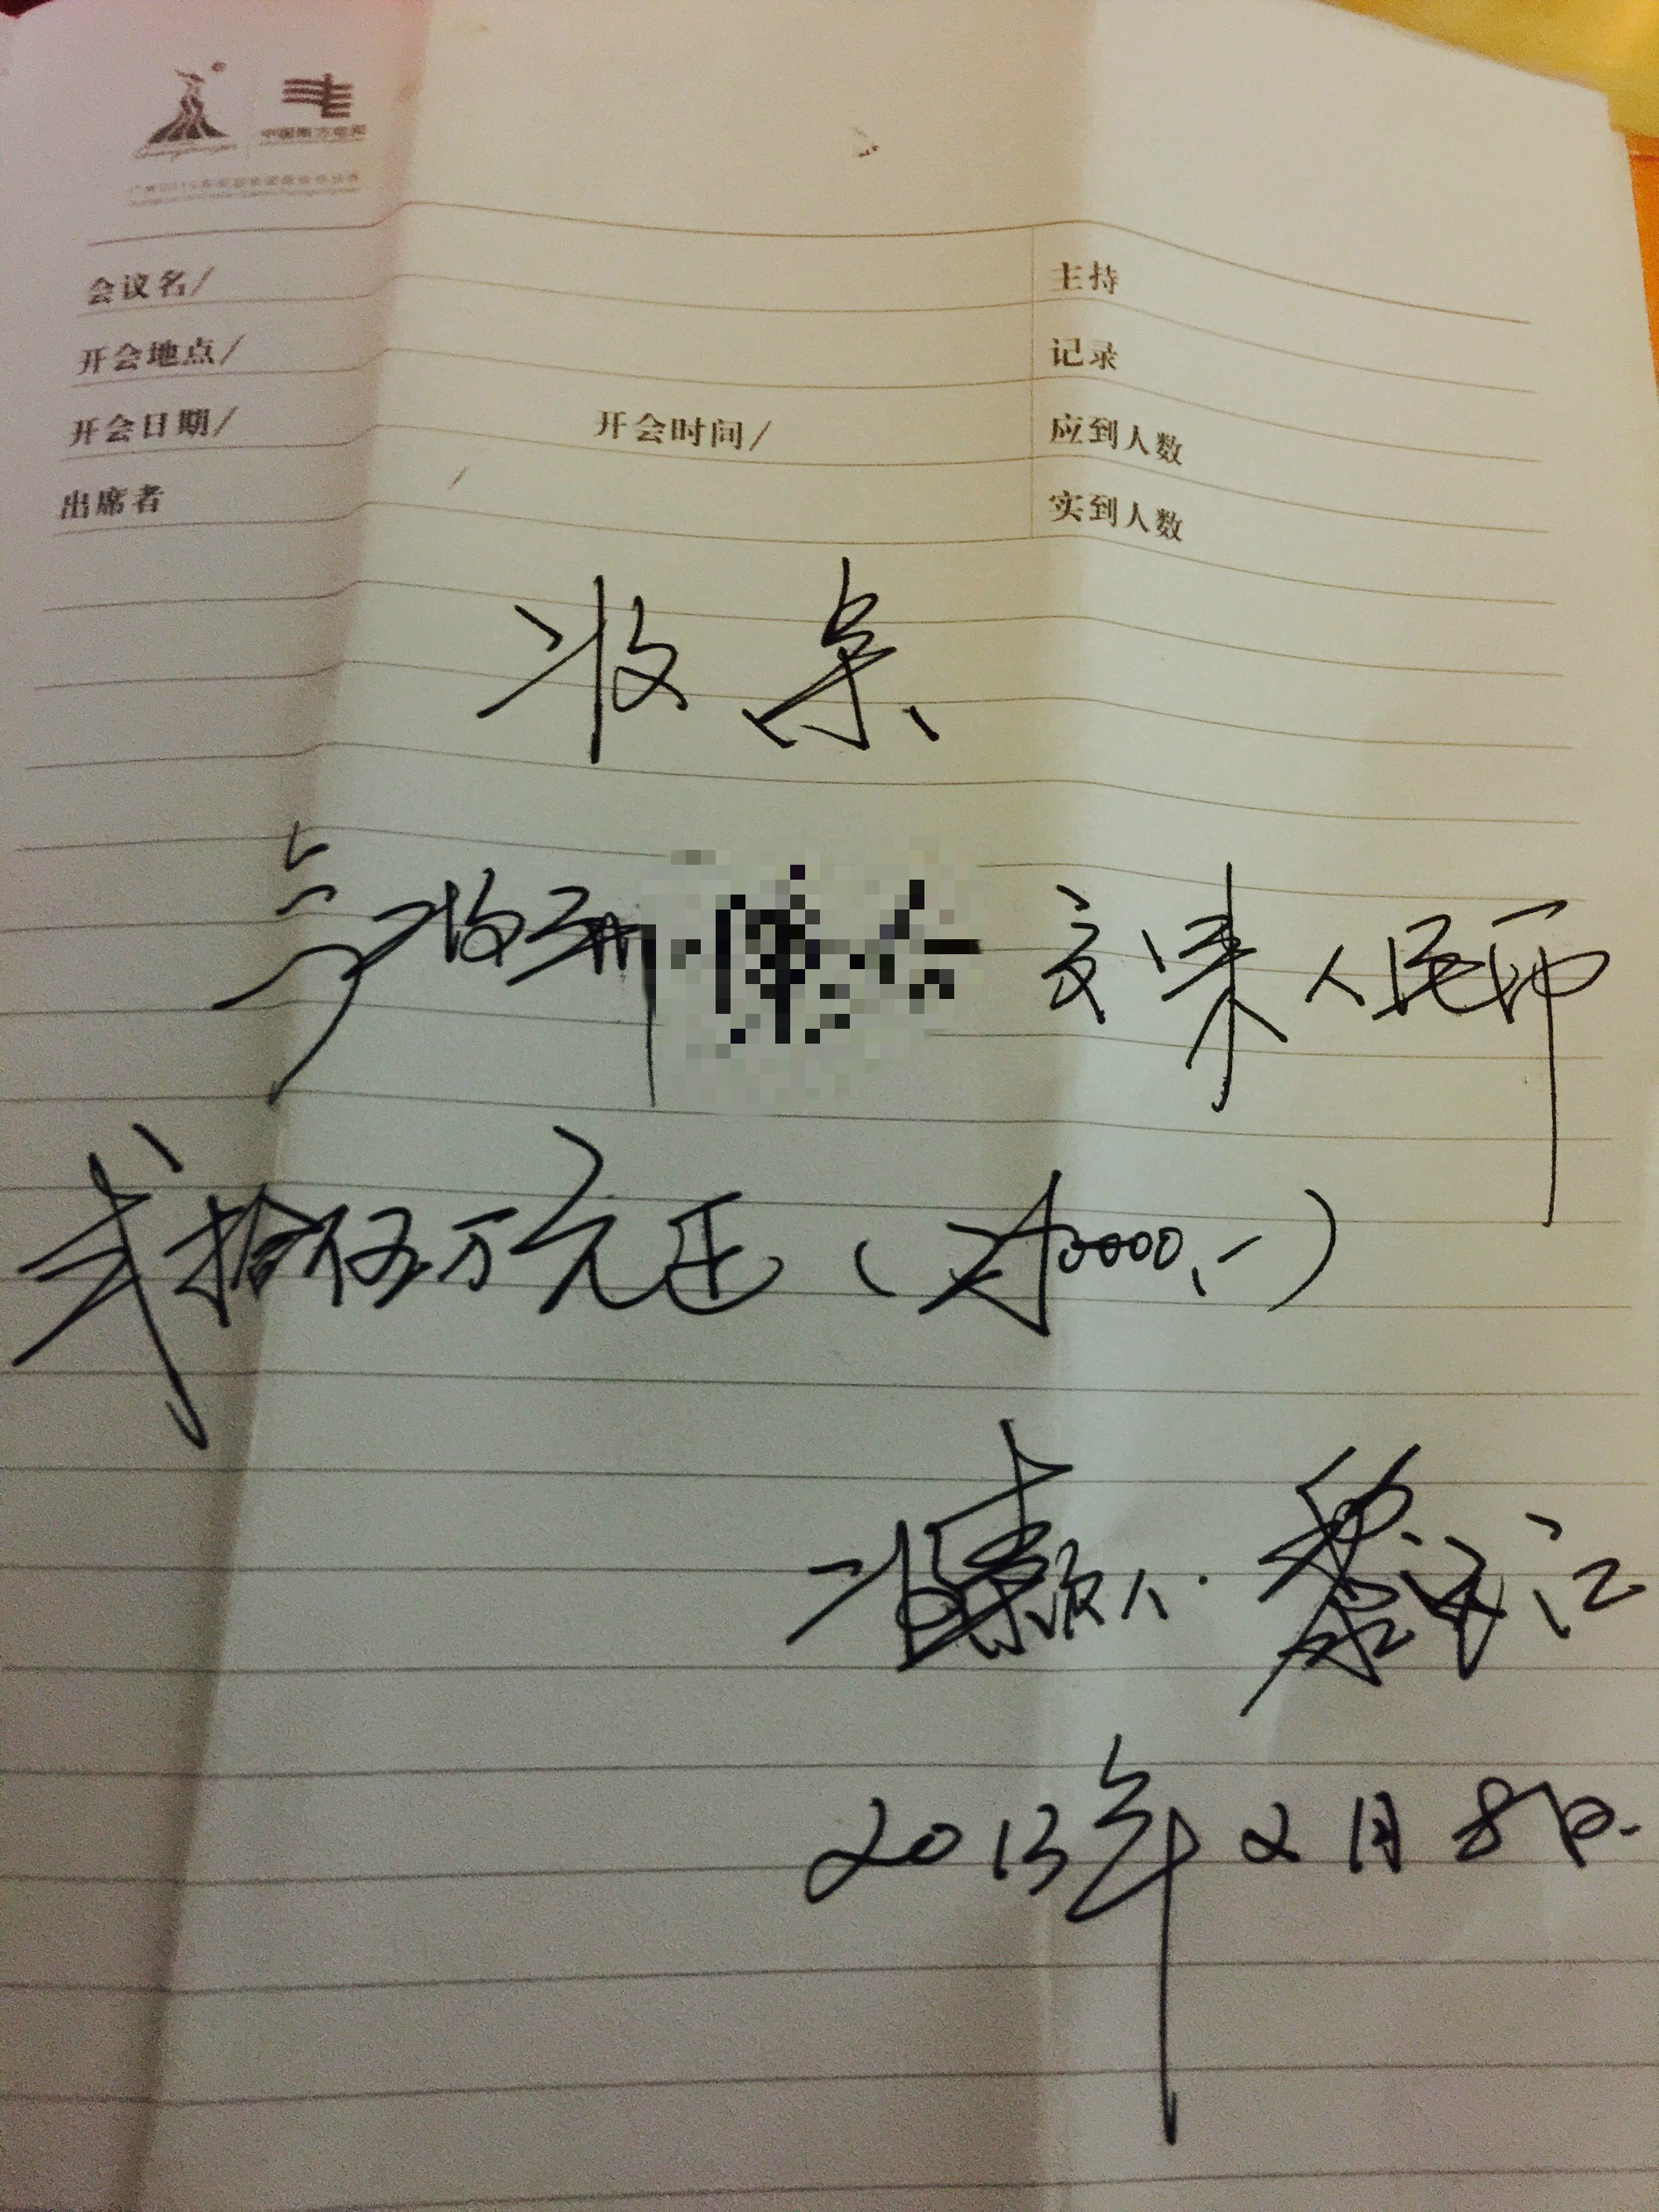 中国南方电网
会议名/ 主持
开会地点/ 记录
开会日期/ 开会时间/ 应到人数
出席者 实到人数
收条
今收到 交来人民币
贰拾伍万元正(250000.-)
收款人. 黎
江
2013年2月8日.